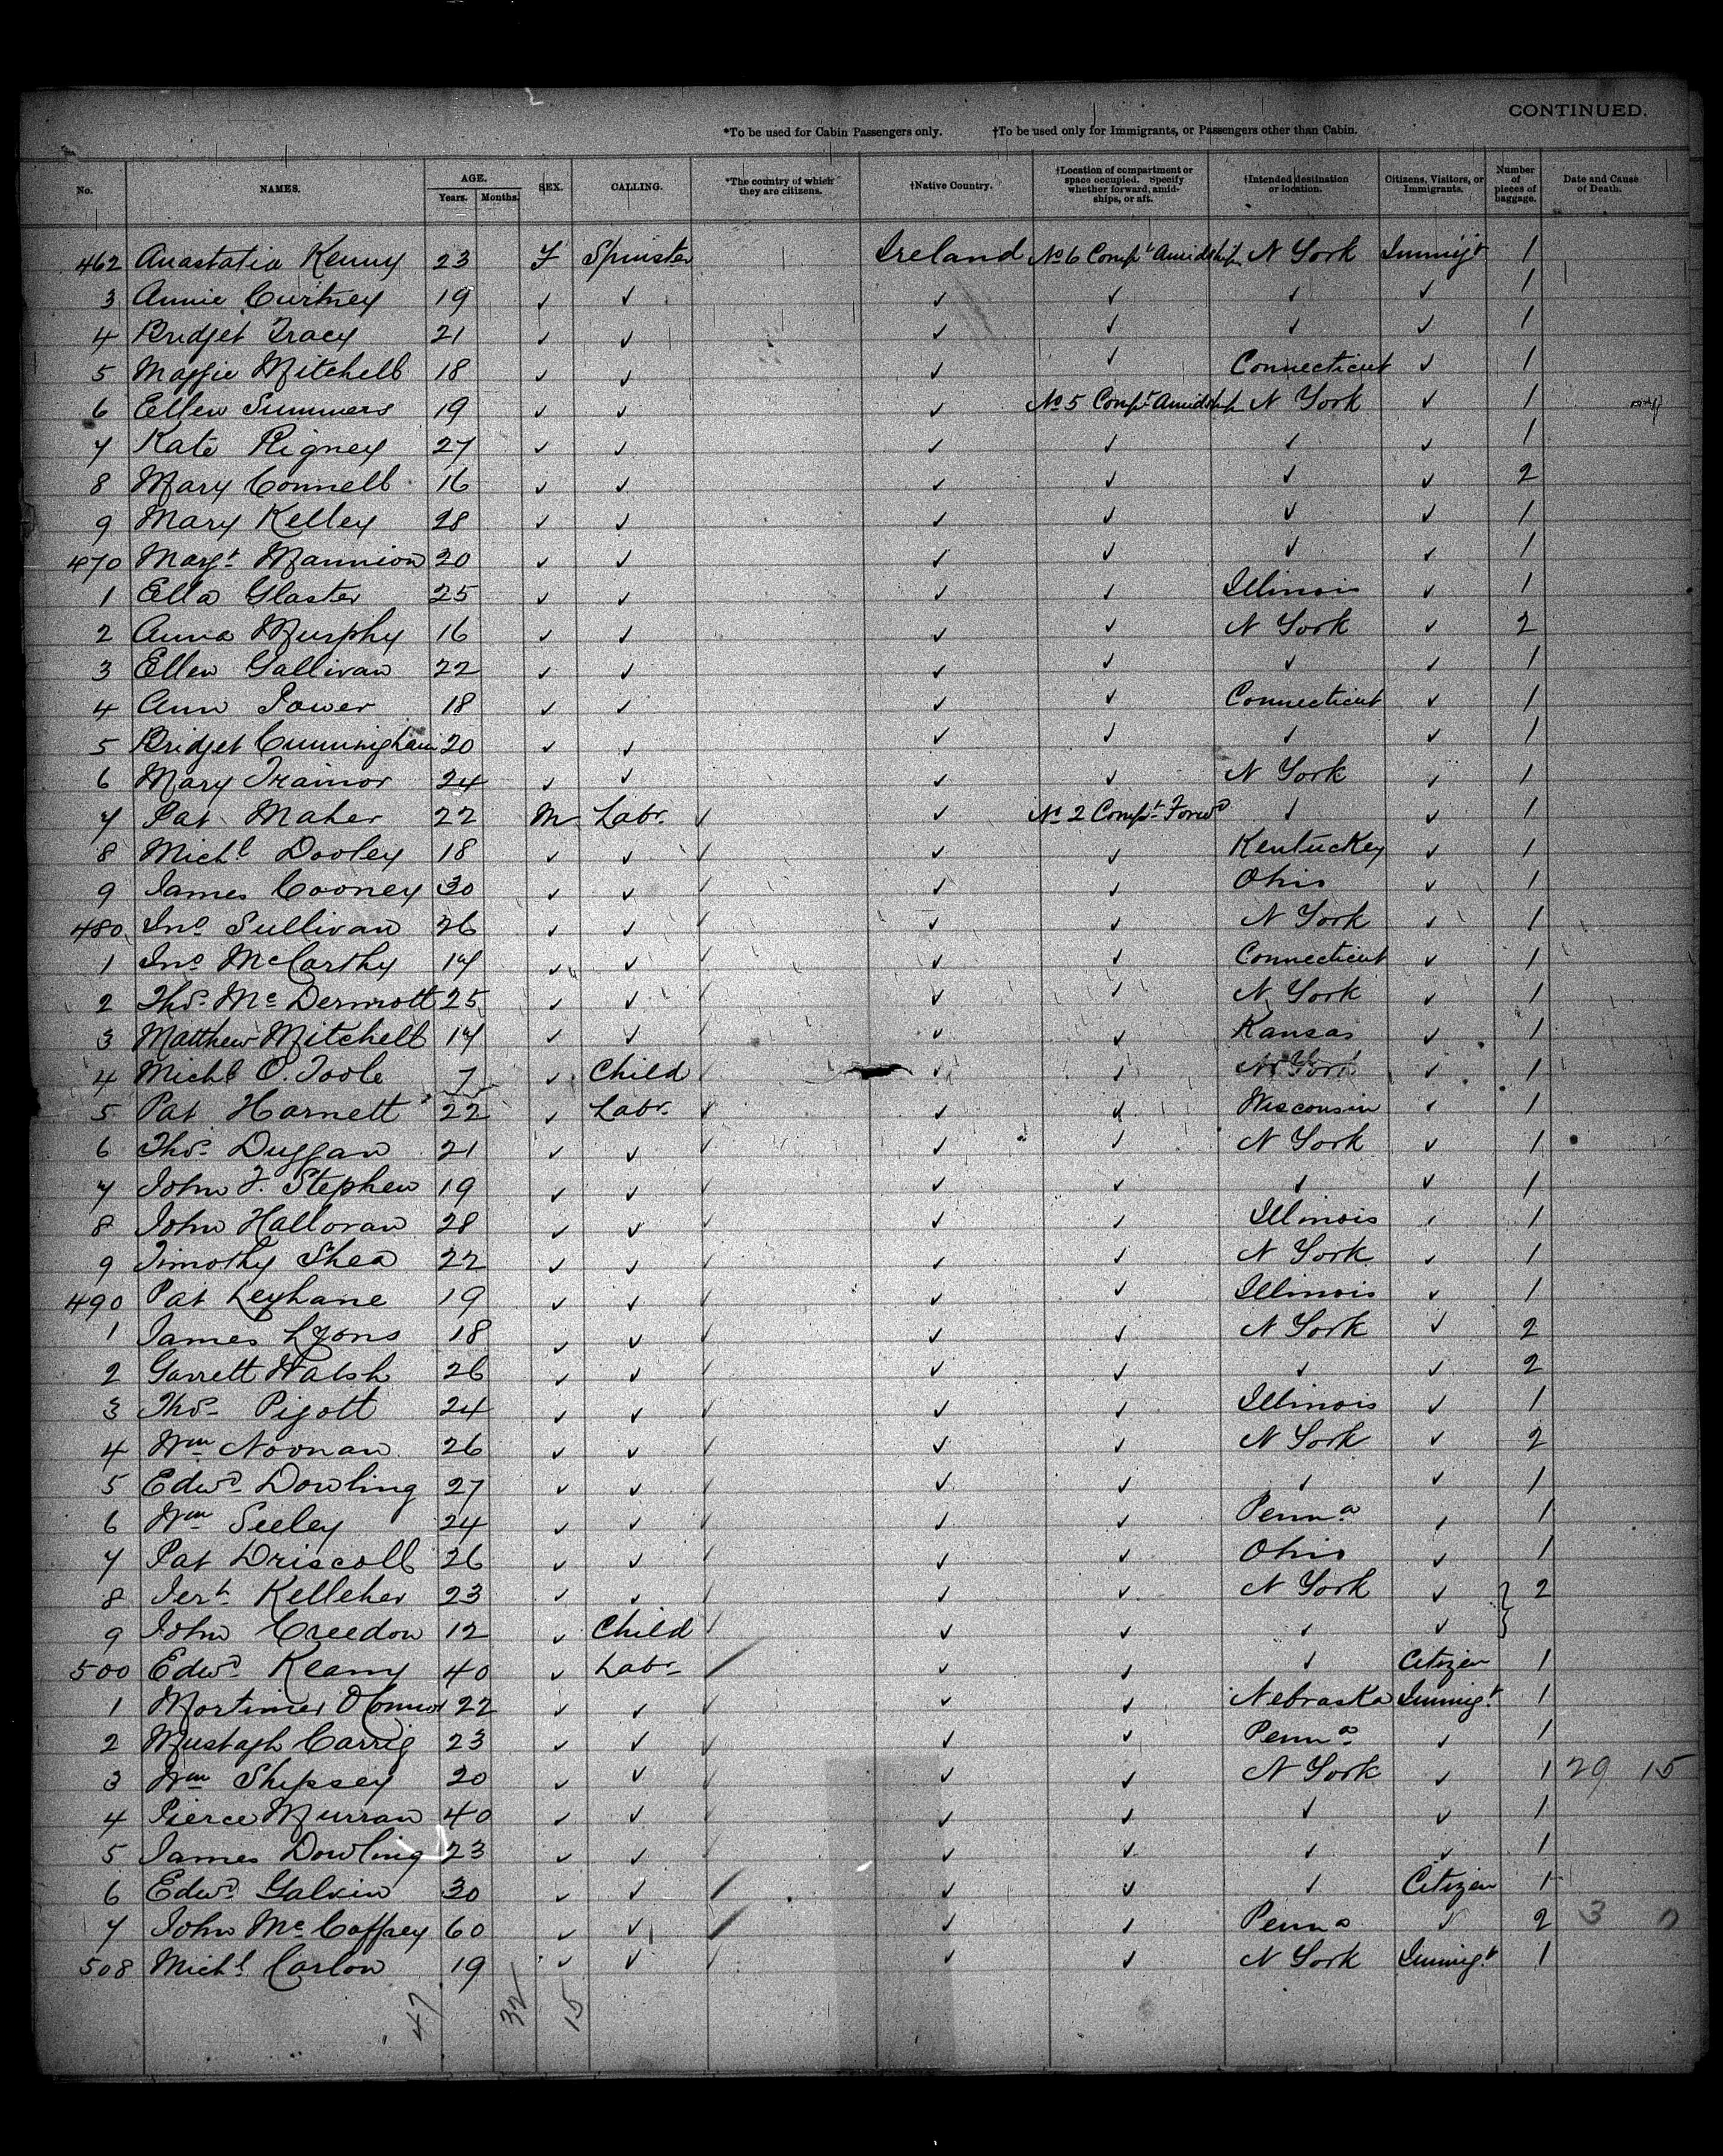 CONTINUED.
*To be used for Cabin Passengers only. †To be used only for Immigrants, or Passengers other than Cabin.
No. NAMES. AGE. Years. Months. SEX. CALLING. *The country of which they are citizens. †Native Country. †Location of compartment or space occupied. Specify whether forward, amidships, or aft. †Intended destination or location. Citizens, Visitors, or Immigrants. Number of pieces of baggage. Date and Cause of Death.
462 Anastatia Kenny 23 F Spinster Ireland No 6 Compt Amidship N York Immigt 1
3 Annie Curtney 19 ✓ ✓ ✓ ✓ ✓ ✓ 1
4 Bridget Tracy 21 ✓ ✓ ✓ ✓ ✓ ✓ 1
5 Maggie Mitchell 18 ✓ ✓ ✓ ✓ Connecticut ✓ 1
6 Ellen Summers 19 ✓ ✓ ✓ No 5 Compt Amidship N York ✓ 1
7 Kate Rigney 27 ✓ ✓ ✓ ✓ ✓ ✓ 1
8 Mary Connell 16 ✓ ✓ ✓ ✓ ✓ ✓ 2
9 Mary Kelley 28 ✓ ✓ ✓ ✓ ✓ ✓ 1
470 Margt Mannion 20 ✓ ✓ ✓ ✓ ✓ ✓ 1
1 Ella Glaster 25 ✓ ✓ ✓ ✓ Illinois ✓ 1
2 Anna Murphy 16 ✓ ✓ ✓ ✓ N York ✓ 2
3 Ellen Gallivan 22 ✓ ✓ ✓ ✓ ✓ ✓ 1
4 Ann Power 18 ✓ ✓ ✓ ✓ Connecticut ✓ 1
5 Bridget Cunningham 20 ✓ ✓ ✓ ✓ ✓ ✓ 1
6 Mary Trainor 24 ✓ ✓ ✓ ✓ N York ✓ 1
7 Pat Maher 22 M Labr. ✓ ✓ No 2 Compt Forwd ✓ ✓ 1
8 Michl Dooley 18 ✓ ✓ ✓ ✓ ✓ Kentucky ✓ 1
9 James Cooney 30 ✓ ✓ ✓ ✓ ✓ Ohio ✓ 1
480 Jno Sullivan 26 ✓ ✓ ✓ ✓ ✓ N York ✓ 1
1 Jno McCarthy 17 ✓ ✓ ✓ ✓ ✓ Connecticut ✓ 1
2 Thos McDermott 25 ✓ ✓ ✓ ✓ ✓ N York ✓ 1
3 Matthew Mitchell 17 ✓ ✓ ✓ ✓ ✓ Kansas ✓ 1
4 Michl O.Toole 7 ✓ Child ✓ ✓ ✓ N York ✓ 1
5 Pat Harnett 22 ✓ Labr. ✓ ✓ ✓ Wisconsin ✓ 1
6 Thos Duggan 21 ✓ ✓ ✓ ✓ ✓ N York ✓ 1
7 John F. Stephen 19 ✓ ✓ ✓ ✓ ✓ ✓ ✓ 1
8 John Halloran 28 ✓ ✓ ✓ ✓ ✓ Illinois ✓ 1
9 Timothy Shea 22 ✓ ✓ ✓ ✓ ✓ N York ✓ 1
490 Pat Leyhane 19 ✓ ✓ ✓ ✓ ✓ Illinois ✓ 1
1 James Lyons 18 ✓ ✓ ✓ ✓ ✓ N York ✓ 2
2 Garrett Walsh 26 ✓ ✓ ✓ ✓ ✓ ✓ ✓ 2
3 Thos Pigott 24 ✓ ✓ ✓ ✓ ✓ Illinois ✓ 1
4 Wm Noonan 26 ✓ ✓ ✓ ✓ ✓ N York ✓ 2
5 Edwd Dowling 27 ✓ ✓ ✓ ✓ ✓ ✓ ✓ 1
6 Wm Seeley 24 ✓ ✓ ✓ ✓ ✓ Penna ✓ 1
7 Pat Driscoll 26 ✓ ✓ ✓ ✓ ✓ Ohio ✓ 1
8 Jerh Kelleher 23 ✓ ✓ ✓ ✓ ✓ N York ✓ } 2
9 John Creedon 12 ✓ Child ✓ ✓ ✓ ✓ ✓
500 Edwd Keany 40 ✓ Labr ✓ ✓ ✓ ✓ Citizen 1
1 Mortimer OConnor 22 ✓ ✓ ✓ ✓ Nebraska Immigt 1
2 Mustagh Carrig 23 ✓ ✓ ✓ ✓ ✓ Penna ✓ 1
3 Wm Shipsey 20 ✓ ✓ ✓ ✓ N York ✓ 1 29 15
4 Pierce Murran 40 ✓ ✓ ✓ ✓ ✓ ✓ 1
5 James Dowling 23 ✓ ✓ ✓ ✓ ✓ ✓ 1
6 Edwd Galvin 30 ✓ ✓ ✓ ✓ ✓ ✓ Citizen 1
7 John McCaffrey 60 ✓ ✓ ✓ ✓ ✓ Penna ✓ 2 3 0
508 Michl Carlon 19 ✓ ✓ ✓ ✓ N York Immigt 1
47 32 15